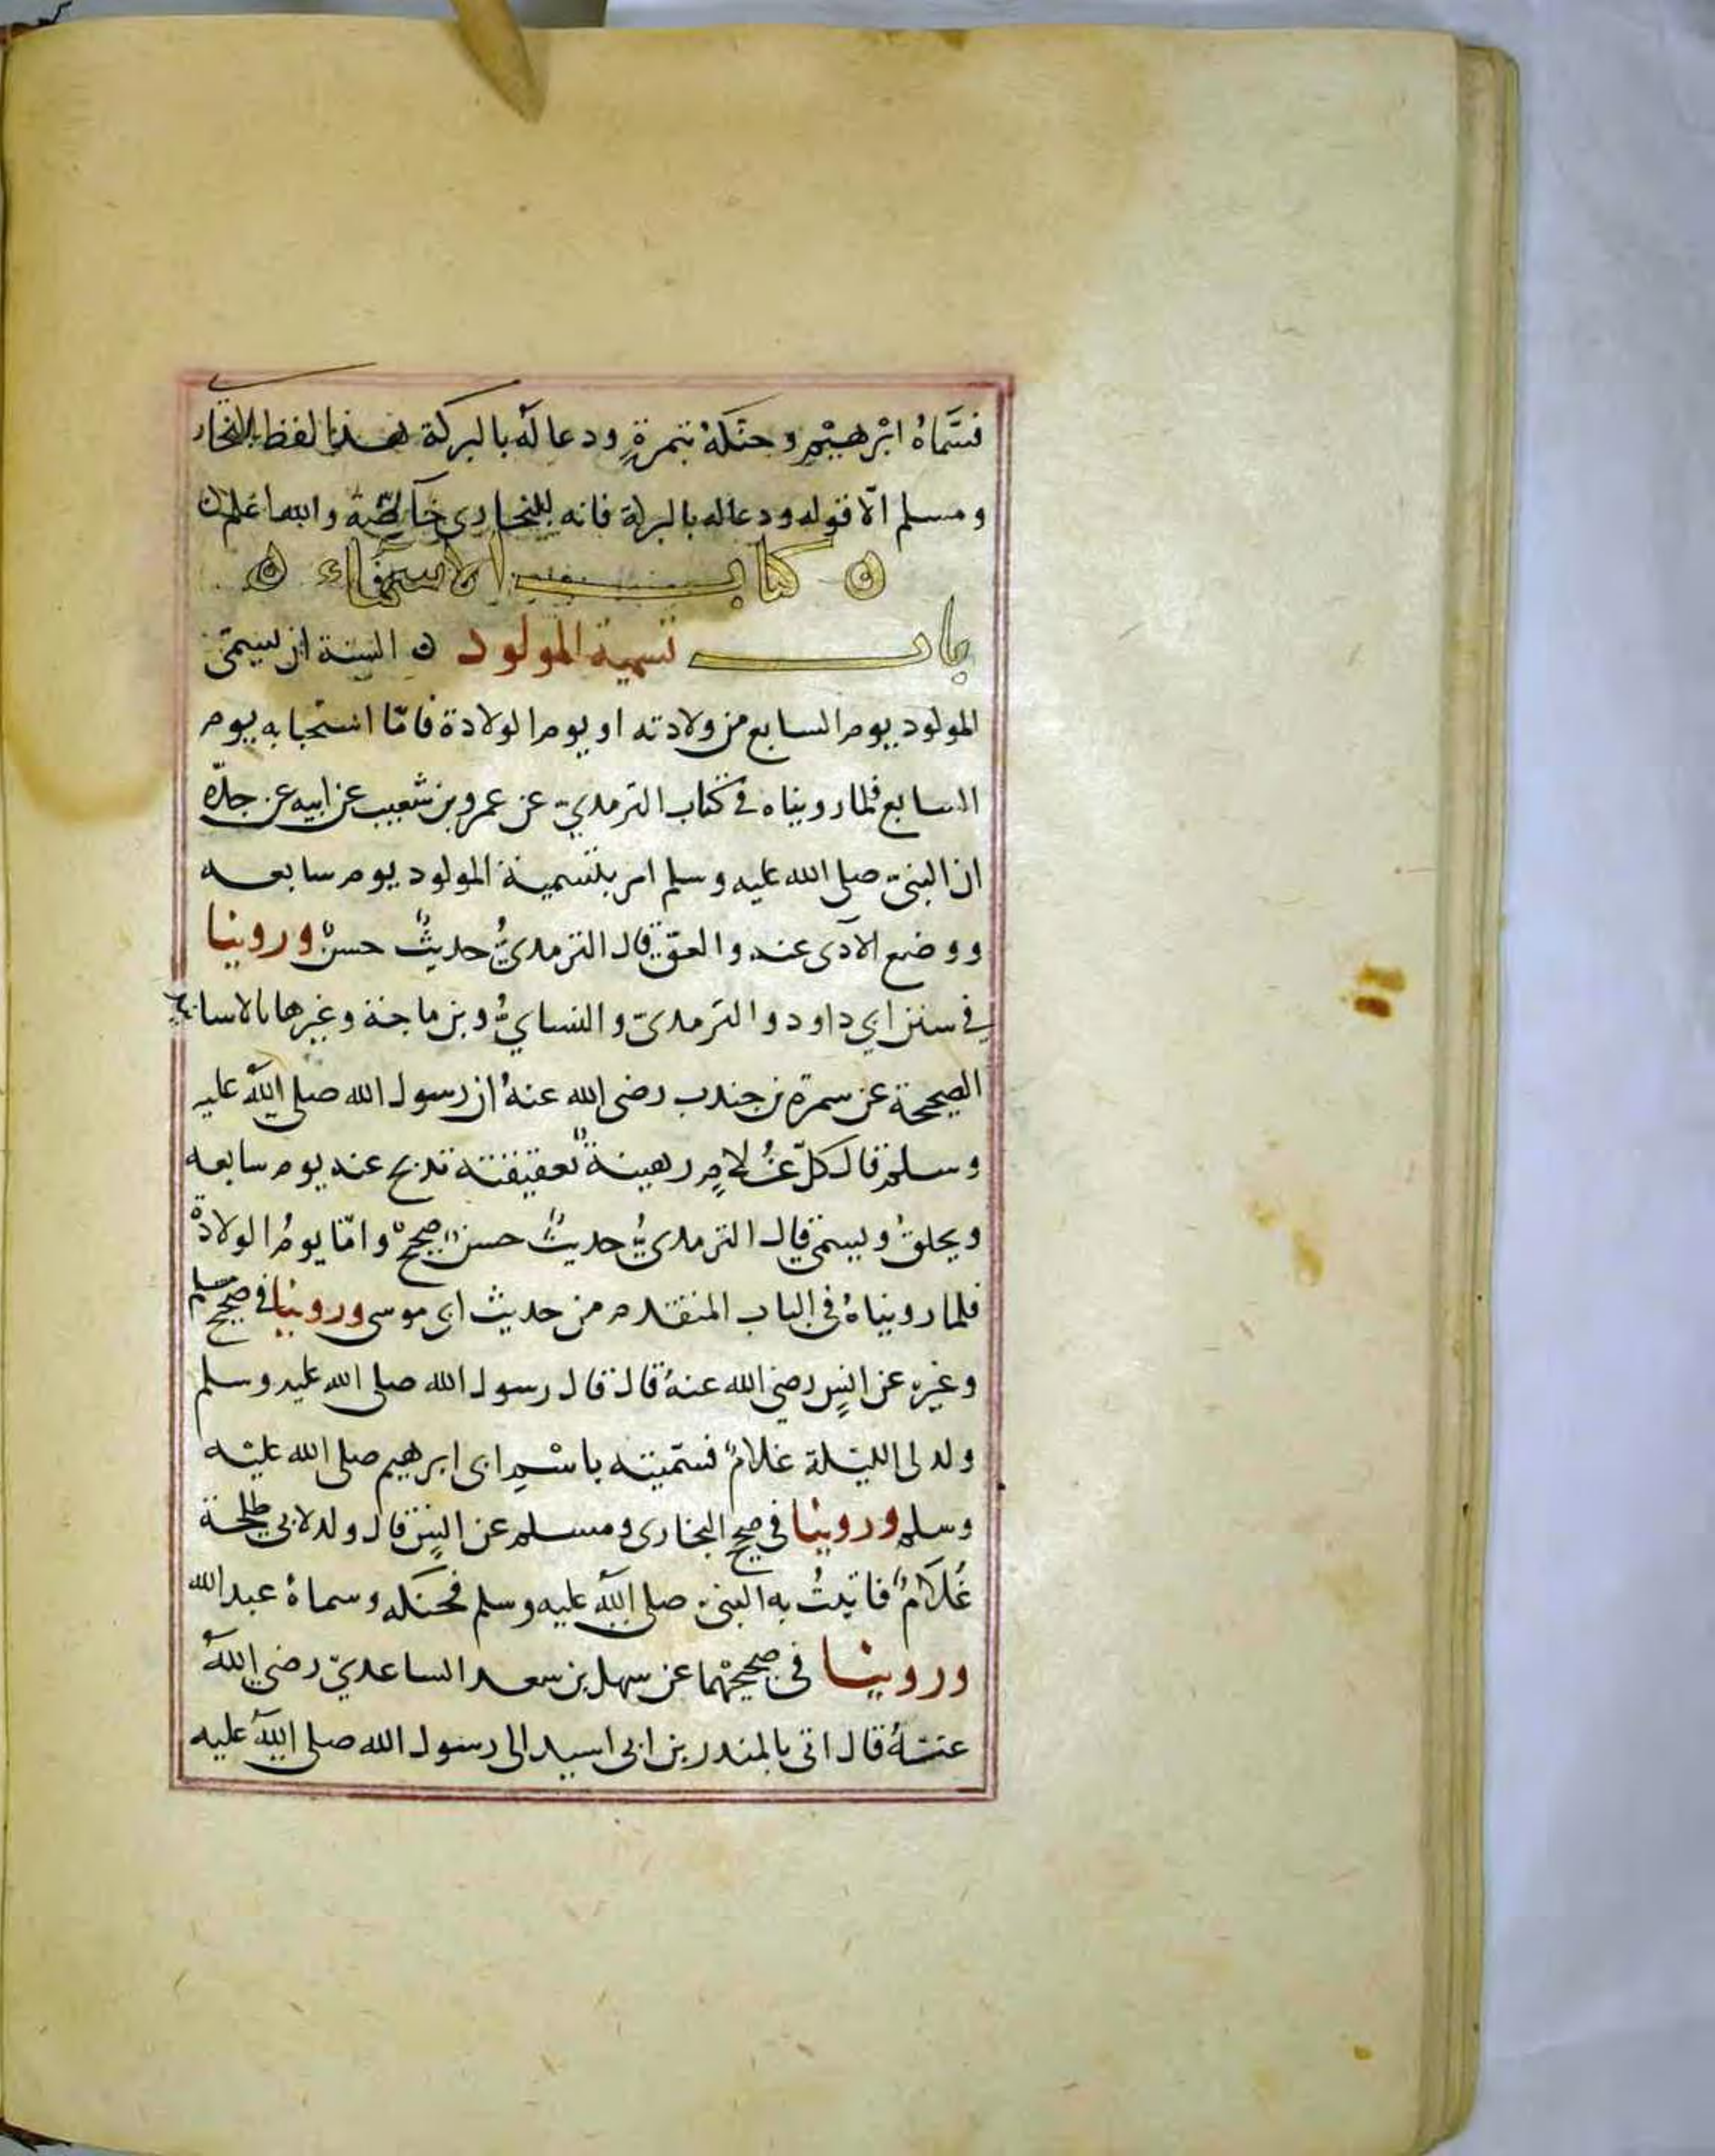 فسَمَّاهُ ابْرهيْم وحنكهُ بتمرةٍ ودعا لهُ بالبركة هذا لفظ البخاري
ومسلم الّا قوله ودعا له بالبركة فانه للبخارى خاصّة والله اعلم ن
ن كتاب الاسمآء ن
باب تسمية المولود ن السنة ان يسمّى
المولود يوم السابع من ولادته او يوم الولادة فامّا استحبابه يوم
السابع فلما رويناه في كتاب الترمديّ عن عمرو بن شعيب عن ابيه عن جدّه
ان النبىّ صلى الله عليه وسلم امر بتسمية المولود يوم سابعه
ووضع الآدى عنه والعقّ قال الترمدىُّ حديثٌ حسنٌ وروينا
في سنن ابي داود والترمدىّ والنسايُّ وبن ماجة وغيرها بالاسانيد
الصحيحة عن سمرة بن جندب رضى الله عنهُ ان رسول الله صلى اللهُ عليه
وسلم قال كلّ غُلامٍ رهينةٌ بعقيقته تدبح عنه يوم سابعه
ويحلقُ ويسمّى قال الترمدىُّ حديثٌ حسنٌ صحيحٌ وامّا يومُ الولادةْ
فلما رويناهُ فى الباب المتقدم من حديث ابى موسى وروينا فى صحيح مسلم
وغيره عن انسٍ رضى الله عنهُ قال قال رسول الله صلى الله عليه وسلم
ولد لى الليْلة غلامٌ فسمّيته باسْمِ ابى ابرهيم صلى الله عليْه
وسلم وروينا فى صحيح البخارى ومسلم عن انسٍ قال ولد لابى طلحة
غُلَامٌ فاتيتُ به النبىّ صلى اللهُ عليه وسلم فحنكه وسماهُ عبد الله
وروينا فى صحيحيْهما عن سهل بن سعد الساعديّ رضى اللهُ
عنهُ قال اتى بالمندر بن ابى اسيد الى رسول الله صلى اللهُ عليه